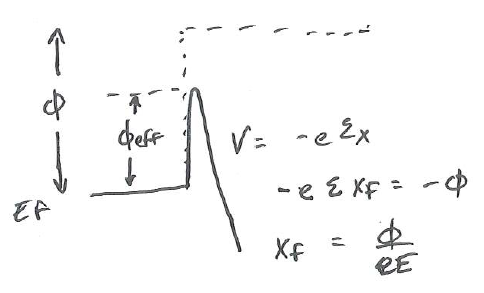 ϕ
ϕeff
EF
V = -e Ɛx
-e Ɛ xf = -ϕ
xf = ϕ/eE